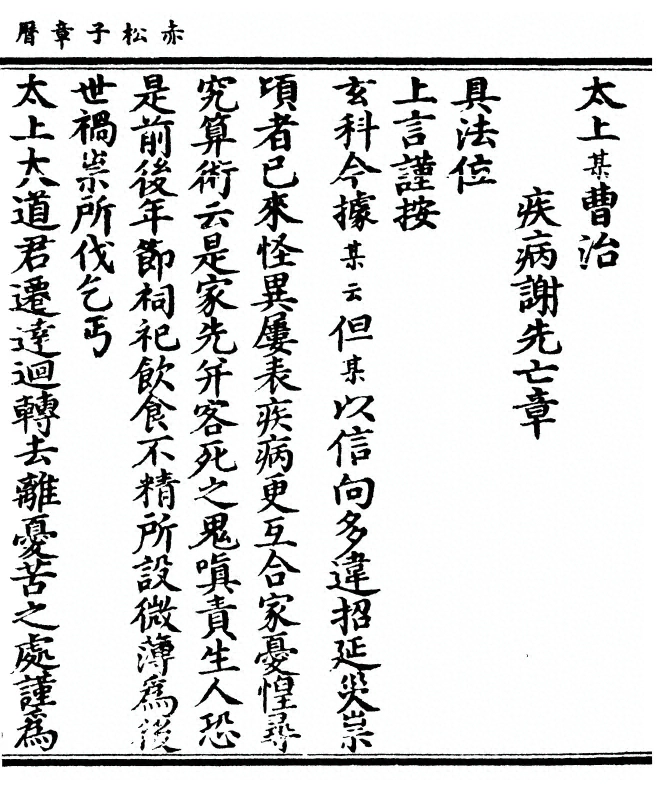 赤松子章曆
太上某曹治
疾病謝先亡章
具法位
上言謹按
玄科今據某云但某以信向多違招延災祟
頃者已來怪異屢表疾病更互合家憂惶尋
究算術云是家先并客死之鬼嗔責生人恐
是前後年節祠祀飲食不精所設微薄爲後
世禍祟所伐乞丐
太上大道君遷達迴轉去離憂苦之處謹爲